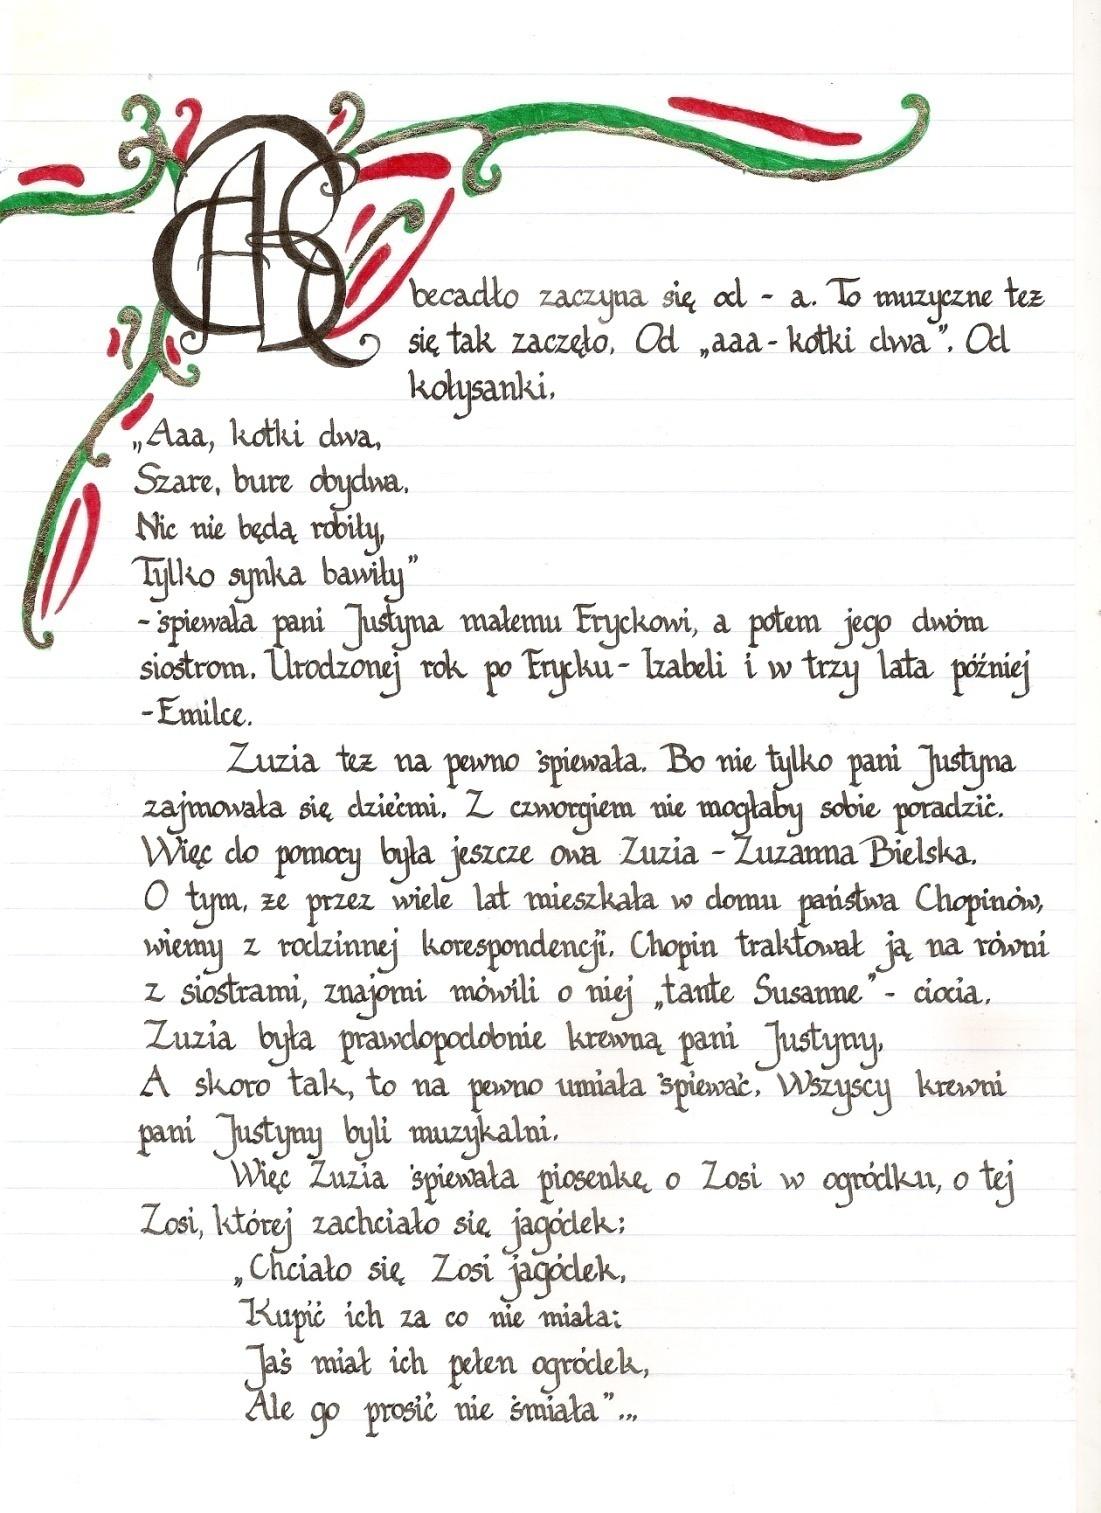 Abecadło zaczyna się od - a. To muzyczne też
się tak zaczęło. Od „aaa - kotki dwa”. Od
kołysanki.
„Aaa, kotki dwa,
Szare, bure obydwa,
Nic nie będą robiły,
Tylko synka bawiły”
- śpiewała pani Justyna małemu Fryckowi, a potem jego dwóm
siostrom. Urodzonej rok po Frycku - Izabeli i w trzy lata później
- Emilce.
Zuzia też na pewno śpiewała. Bo nie tylko pani Justyna
zajmowała się dziećmi. Z czworgiem nie mogłaby sobie poradzić.
Więc do pomocy była jeszcze owa Zuzia - Zuzanna Bielska.
O tym, że przez wiele lat mieszkała w domu państwa Chopinów,
wiemy z rodzinnej korespondencji. Chopin traktował ją na równi
z siostrami, znajomi mówili o niej „tante Susanne” - ciocia.
Zuzia była prawdopodobnie krewną pani Justyny.
A skoro tak, to na pewno umiała śpiewać. Wszyscy krewni
pani Justyny byli muzykalni.
Więc Zuzia śpiewała piosenkę o Zosi w ogródku, o tej
Zosi, której zachciało się jagódek:
„Chciało się Zosi jagódek,
Kupić ich za co nie miała:
Jaś miał ich pełen ogródek,
Ale go prosić nie śmiała”...